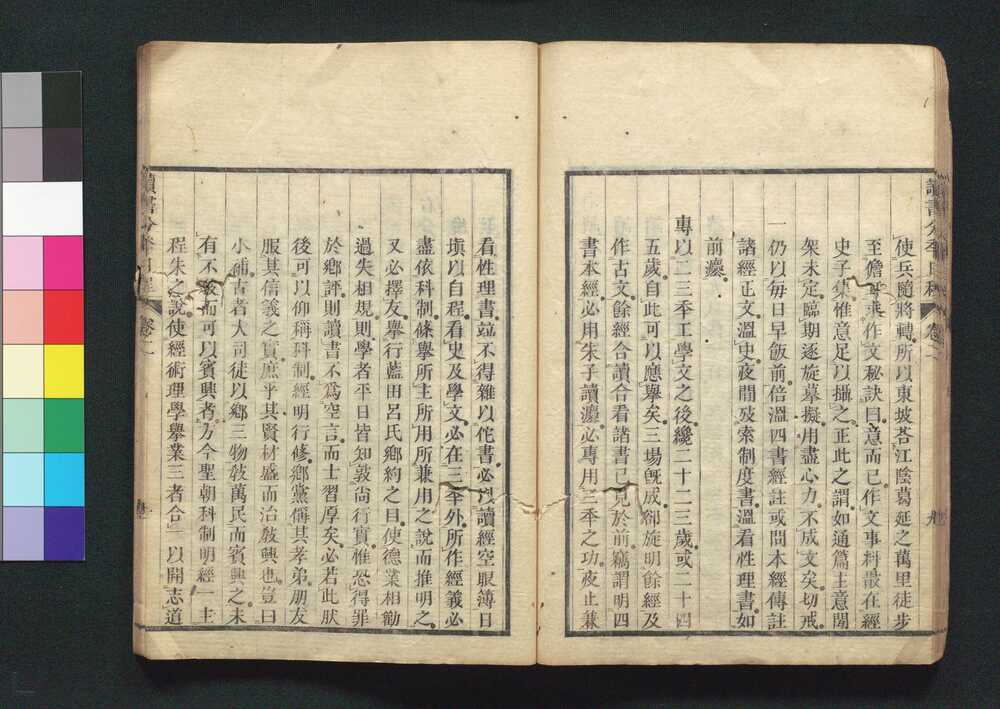 讀書分年日程
卷二
使兵隨將轉所以東坡荅江陰葛延之萬里徒步
至儋耳乘作文秘訣曰意而已作文事料散在經
史子集惟意足以攝之正此之謂如通篇主意間
架未定臨期逐旋摹擬用盡心力不成文矣切戒
一仍以每日早飯前倍溫四書經註或問本經傳註
諸經正文溫史夜間攷索制度書溫看性理書如
前灋
專以二三季工學文之後纔二十二三歲或二十四
五歲自此可以應舉矣三場旣成卻旋明餘經及
作古文餘經合讀合看諸書已見於前竊謂明四
書本經必用朱子讀灋必專用三季之功夜止兼
看性理書竝不得雜以佗書必以讀經空眼簿日
塡以自程看史及學文必在三季外所作經義必
盡依科制條舉所主所用所兼用之說而推明之
又必擇友舉行藍田呂氏鄉約之目使德業相勸
過失相規則學者平日皆知敦尙行實惟恐得罪
於鄉評則讀書不爲空言而士習厚矣必若此肰
後可以仰稱科制經明行修鄉黨稱其孝弟朋友
服其信義之實庶乎其賢材盛而治敎興也豈曰
小補古者大司徒以鄉三物敎萬民而賓興之未
有不敎而可以賓興者方今聖朝科制明經一主
程朱之說使經術理學舉業三者合一以開志道
讀書分季日程
卷二